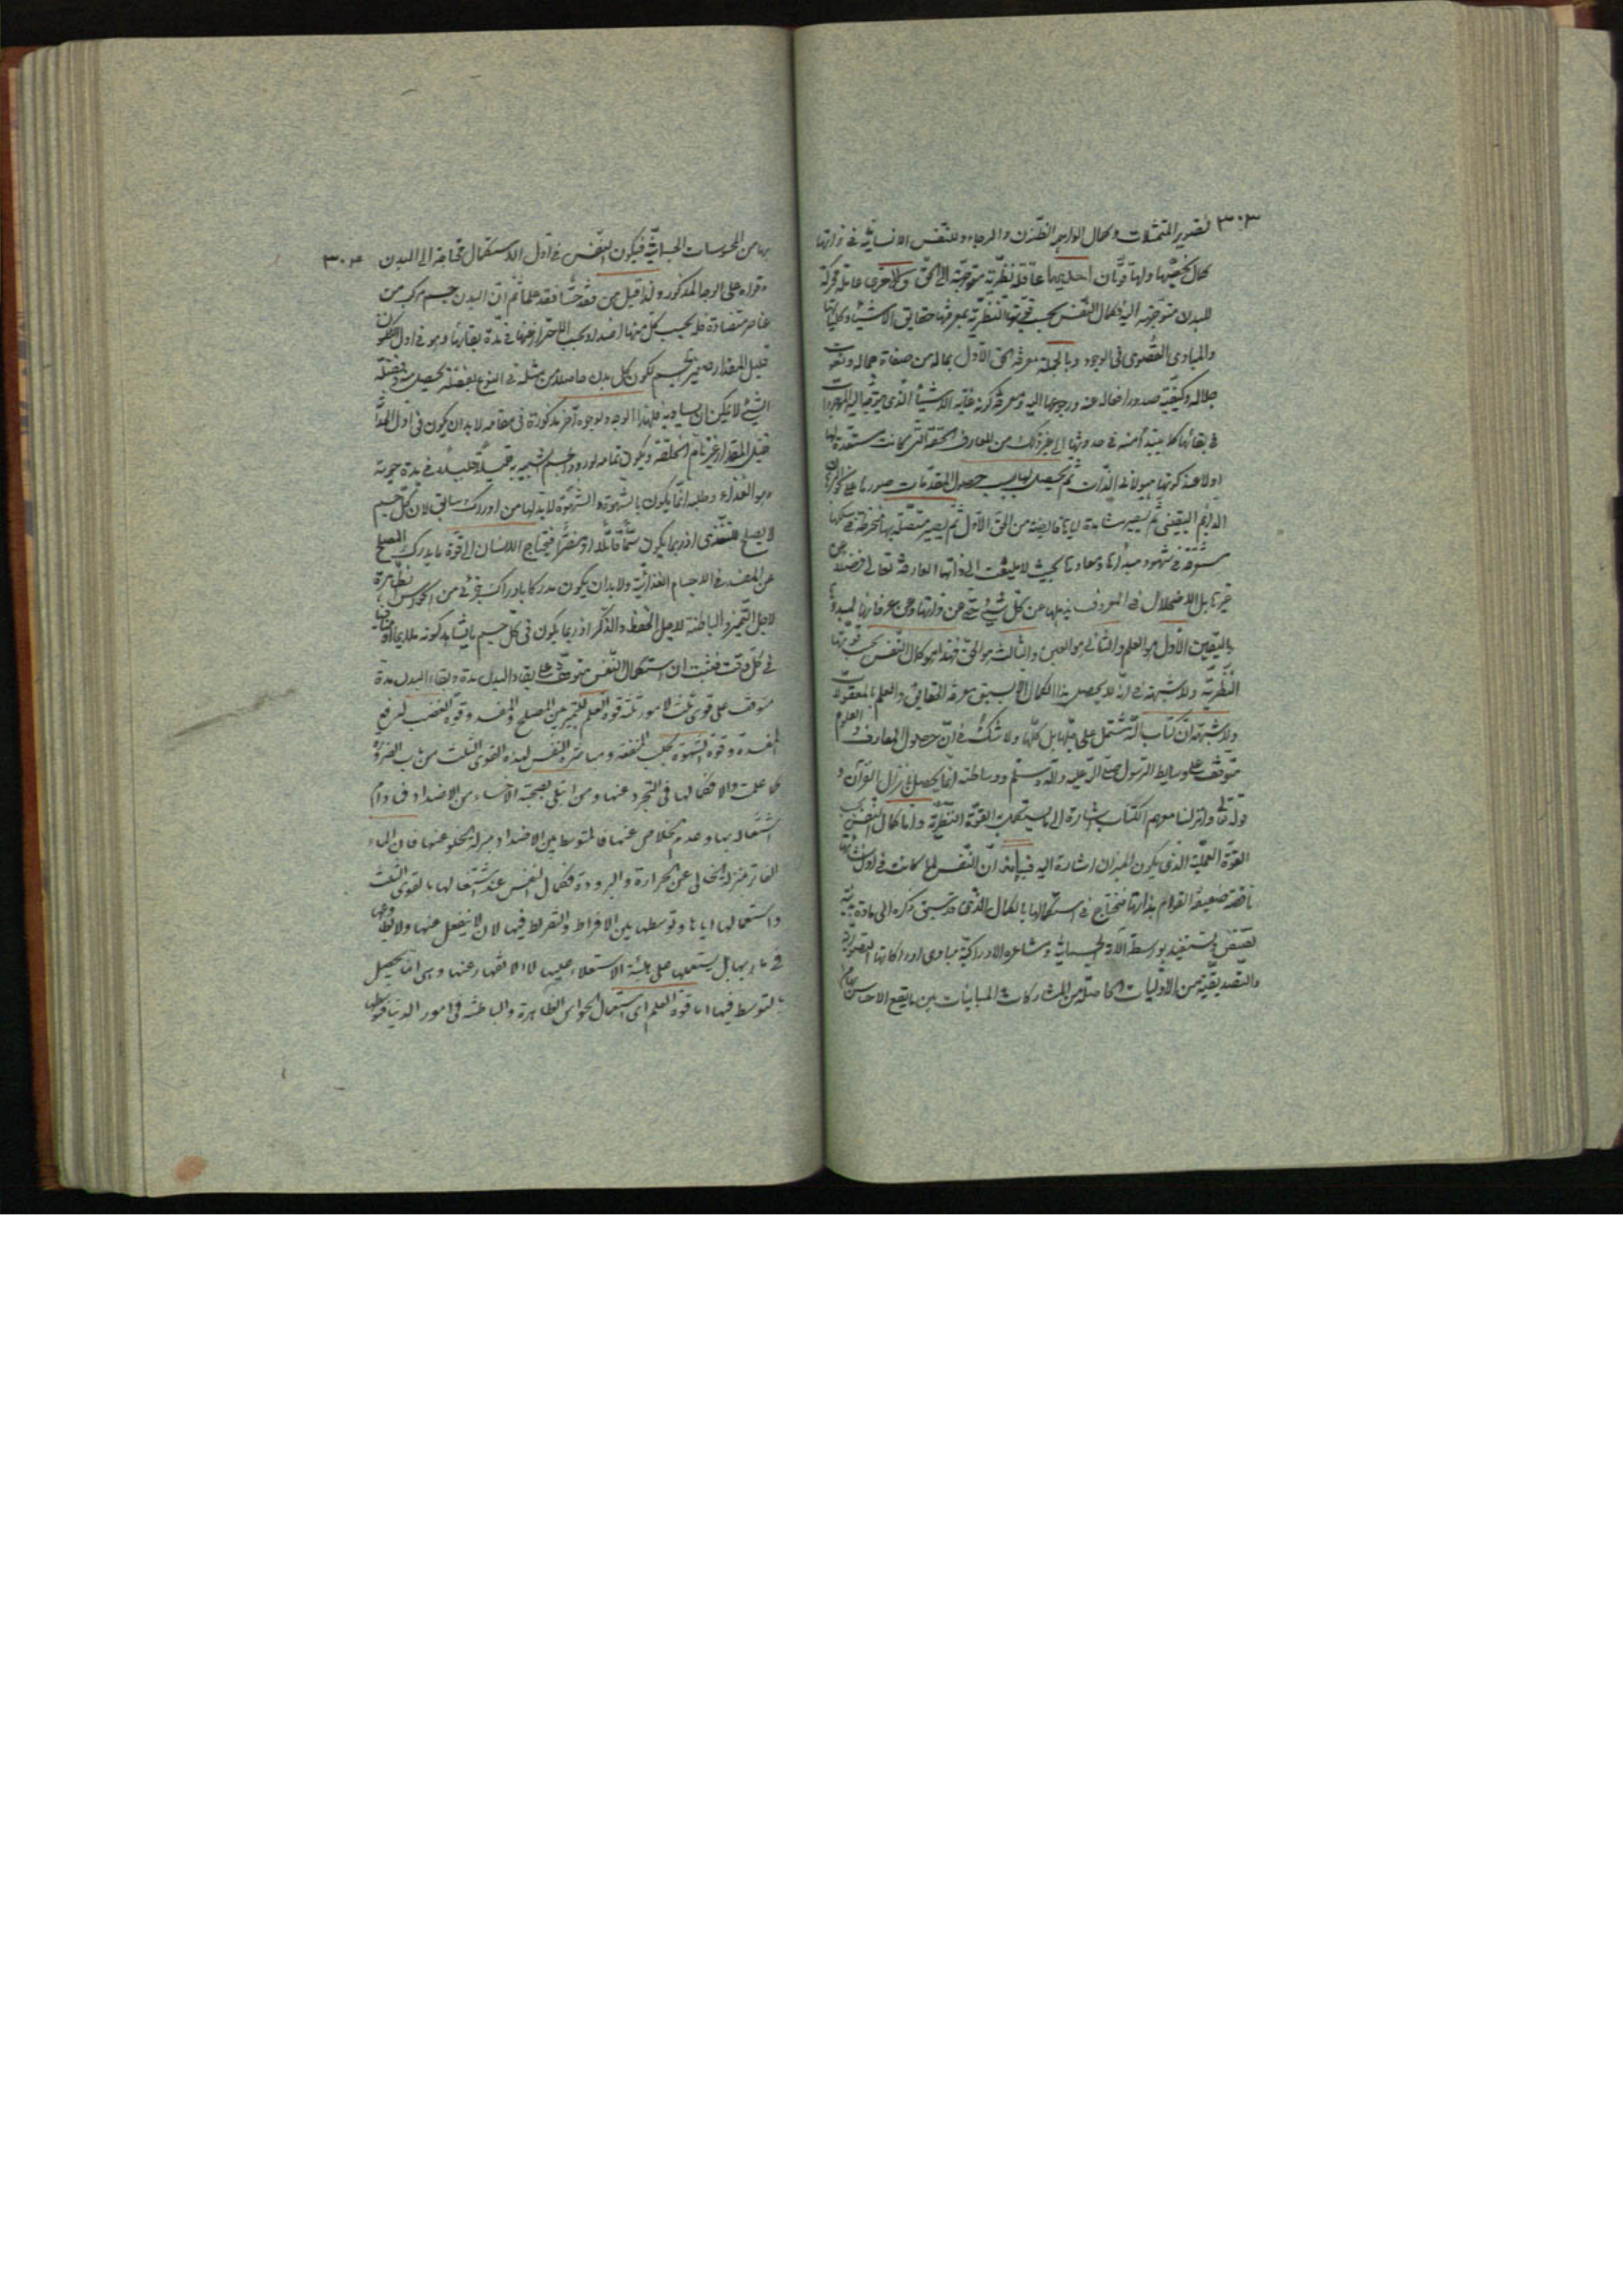 ٣٠٣ تصوير المتمثلات وكمال الواهم الظنون والرجاء وللنفس الانسانية في ذاتها
كمال يخصها ولها قوتان احديهما عاقلة نظرية متوجهة الى الحق والاخرى عاملة محركة
للبدن متوجهة اليه وكمال النفس بحسب قوتها النظرية بمعرفتها حقايق الاشياء وكلياتها
والمبادى القصوى فى الوجود وبالجملة معرفة الحق الاول بماله من صفات جماله ونعوت
جلاله وكيفية صدور افعاله عنه ورجوعها اليه ومعرفة كونه غاية الاشياء الذى يتوجه اليه الموجودات
فى بقائها كما يبتدأ منه فى حدوثها الى غير ذلك من المعارف الحقة التى كانت مستعدة لها
اولا عند كونها هيولانى الذات ثم يحصل لها بسبب حصول المقدمات صورها على
الدايم اليقينى ثم يصير مشاهدة اياها فايضة من الحق الاول ثم يصير متصلة بها منخرطة فى سلكها
مستغرقة فى شهود مبدأها ومعادها بحيث لا يلتفت الى ذاتها العارفة تعالى فضلا عن
غيرها بل الاضمحلال فى المعروف يذهلها عن كل شئ حتى عن ذواتها وعن عرفانها لمبدئها
باليقين الاول هو العلم والثانى هو العين والثالث هو الحق فهذا هو كمال النفس بحسب قوتها
النظرية ولا شبهة فى انه لا يحصل هذا الكمال الا بسبق معرفة الحقايق والعلم بالمعقولات
ولا شبهة ان كتاب الله مشتمل على جلها بل كلها ولا شك فى ان حصول المعارف والعلوم
متوقف على وسايط الرسول صلى الله عليه وآله وسلم ووساطته انما يحصل بتنزل القرآن و
قوله تعالى وانزلنا معهم الكتاب اشارة الى ما يستكمل به القوة النظرية واما كمال النفس بحسب
القوة العملية الذى يكون الميزان اشارة اليه فبيانه ان النفس لما كانت فى اول نشأتها
ناقصة ضعيفة القوام بذاتها فتحتاج فى استكمالها بالكمال الذى قد سبق ذكره الى مادة بدنية
يستفيد بوسطة آلاته الجسمانية ومشاعره الادراكية مبادى ادراكاتها التصورية
والتصديقية من الاوليات الحاصلة من المشاركات والمباينات بين ما يقع الاحساس
بها من المحسوسات الجسمانية فيكون النفس فى اول الاستكمال محتاجة الى البدن ٣٠٤
وقواه على الوجه المذكور ولذا قيل من فقد حسا فقد علما ثم ان البدن جسم مركب من
عناصر متضادة فله بحسب كل منها اضداد يجب الاحتراز عنها فى مدة بقائها وهو فى اول التكون
قليل المقدار صغير الجسم لكون كل بدن حاصلا من مثله فى النوع بفضلة يحصل منه وفضلة
الشئ لا يمكن ان يساويه فلهذا الوجه ولوجوه آخر مذكورة فى مقامه لا بد ان يكون فى اول الامر
قليل المقدار غير تام الخلقة ويكون تمامه بورود جسم شبيه به قليلا قليلا فى مدة حيوته
وهو الغذاء وطلبه انما يكون بالشهوة والشهوة لا بد لها من ادراك سابق لان كل جسم
لا يصلح للتغذى اذ ربما يكون سما قاتلا او مضرا فيحتاج الانسان الى قوة ما يدرك المصلح
عن المفسد فى الاجسام الغذائية ولا بد ان يكون مدركا بادراك جزئى من الحواس الظاهرة
لاجل التميز والباطنة لاجل الحفظ والذكر اذ ربما يكون فى كل جسم
فى كل وقت فثبت ان استكمال النفس متوقف على بقاء البدن مدة وبقاء البدن مدة
متوقف على قوى ثلث لامور ثلثة قوة العلم للتميز بين المصلح والمفسد وقوة الغضب لدفع
المفسدة وقوة الشهوة لجلب المنفعة ومباشرة النفس لهذه القوى الثلث من باب الضرورة
كما علمت والا فكمالها فى التجرد عنها ومن ابتلى بصحبة الاخساء من الاضداد
اشتغاله بها وعدم الخلاص عنها فالمتوسط بين الاضداد بمنزلة الخلو عنها فان الماء
الفاتر بمنزلة الخالى عن الحرارة والبرودة فكمال النفس عند اشتغالها بالقوى الثلث
واستعمالها اياها وتوسطها بين الافراط والتفريط فيها لان لا ينفعل عنها ولا
بل يستعملها على هيئة الاستعلاء عليها لا الانقهار عنها وهى انما يحصل
بالتوسط فيها اما قوة العلم اى استعمال الحواس الظاهرة والباطنة فى امور الدنيا